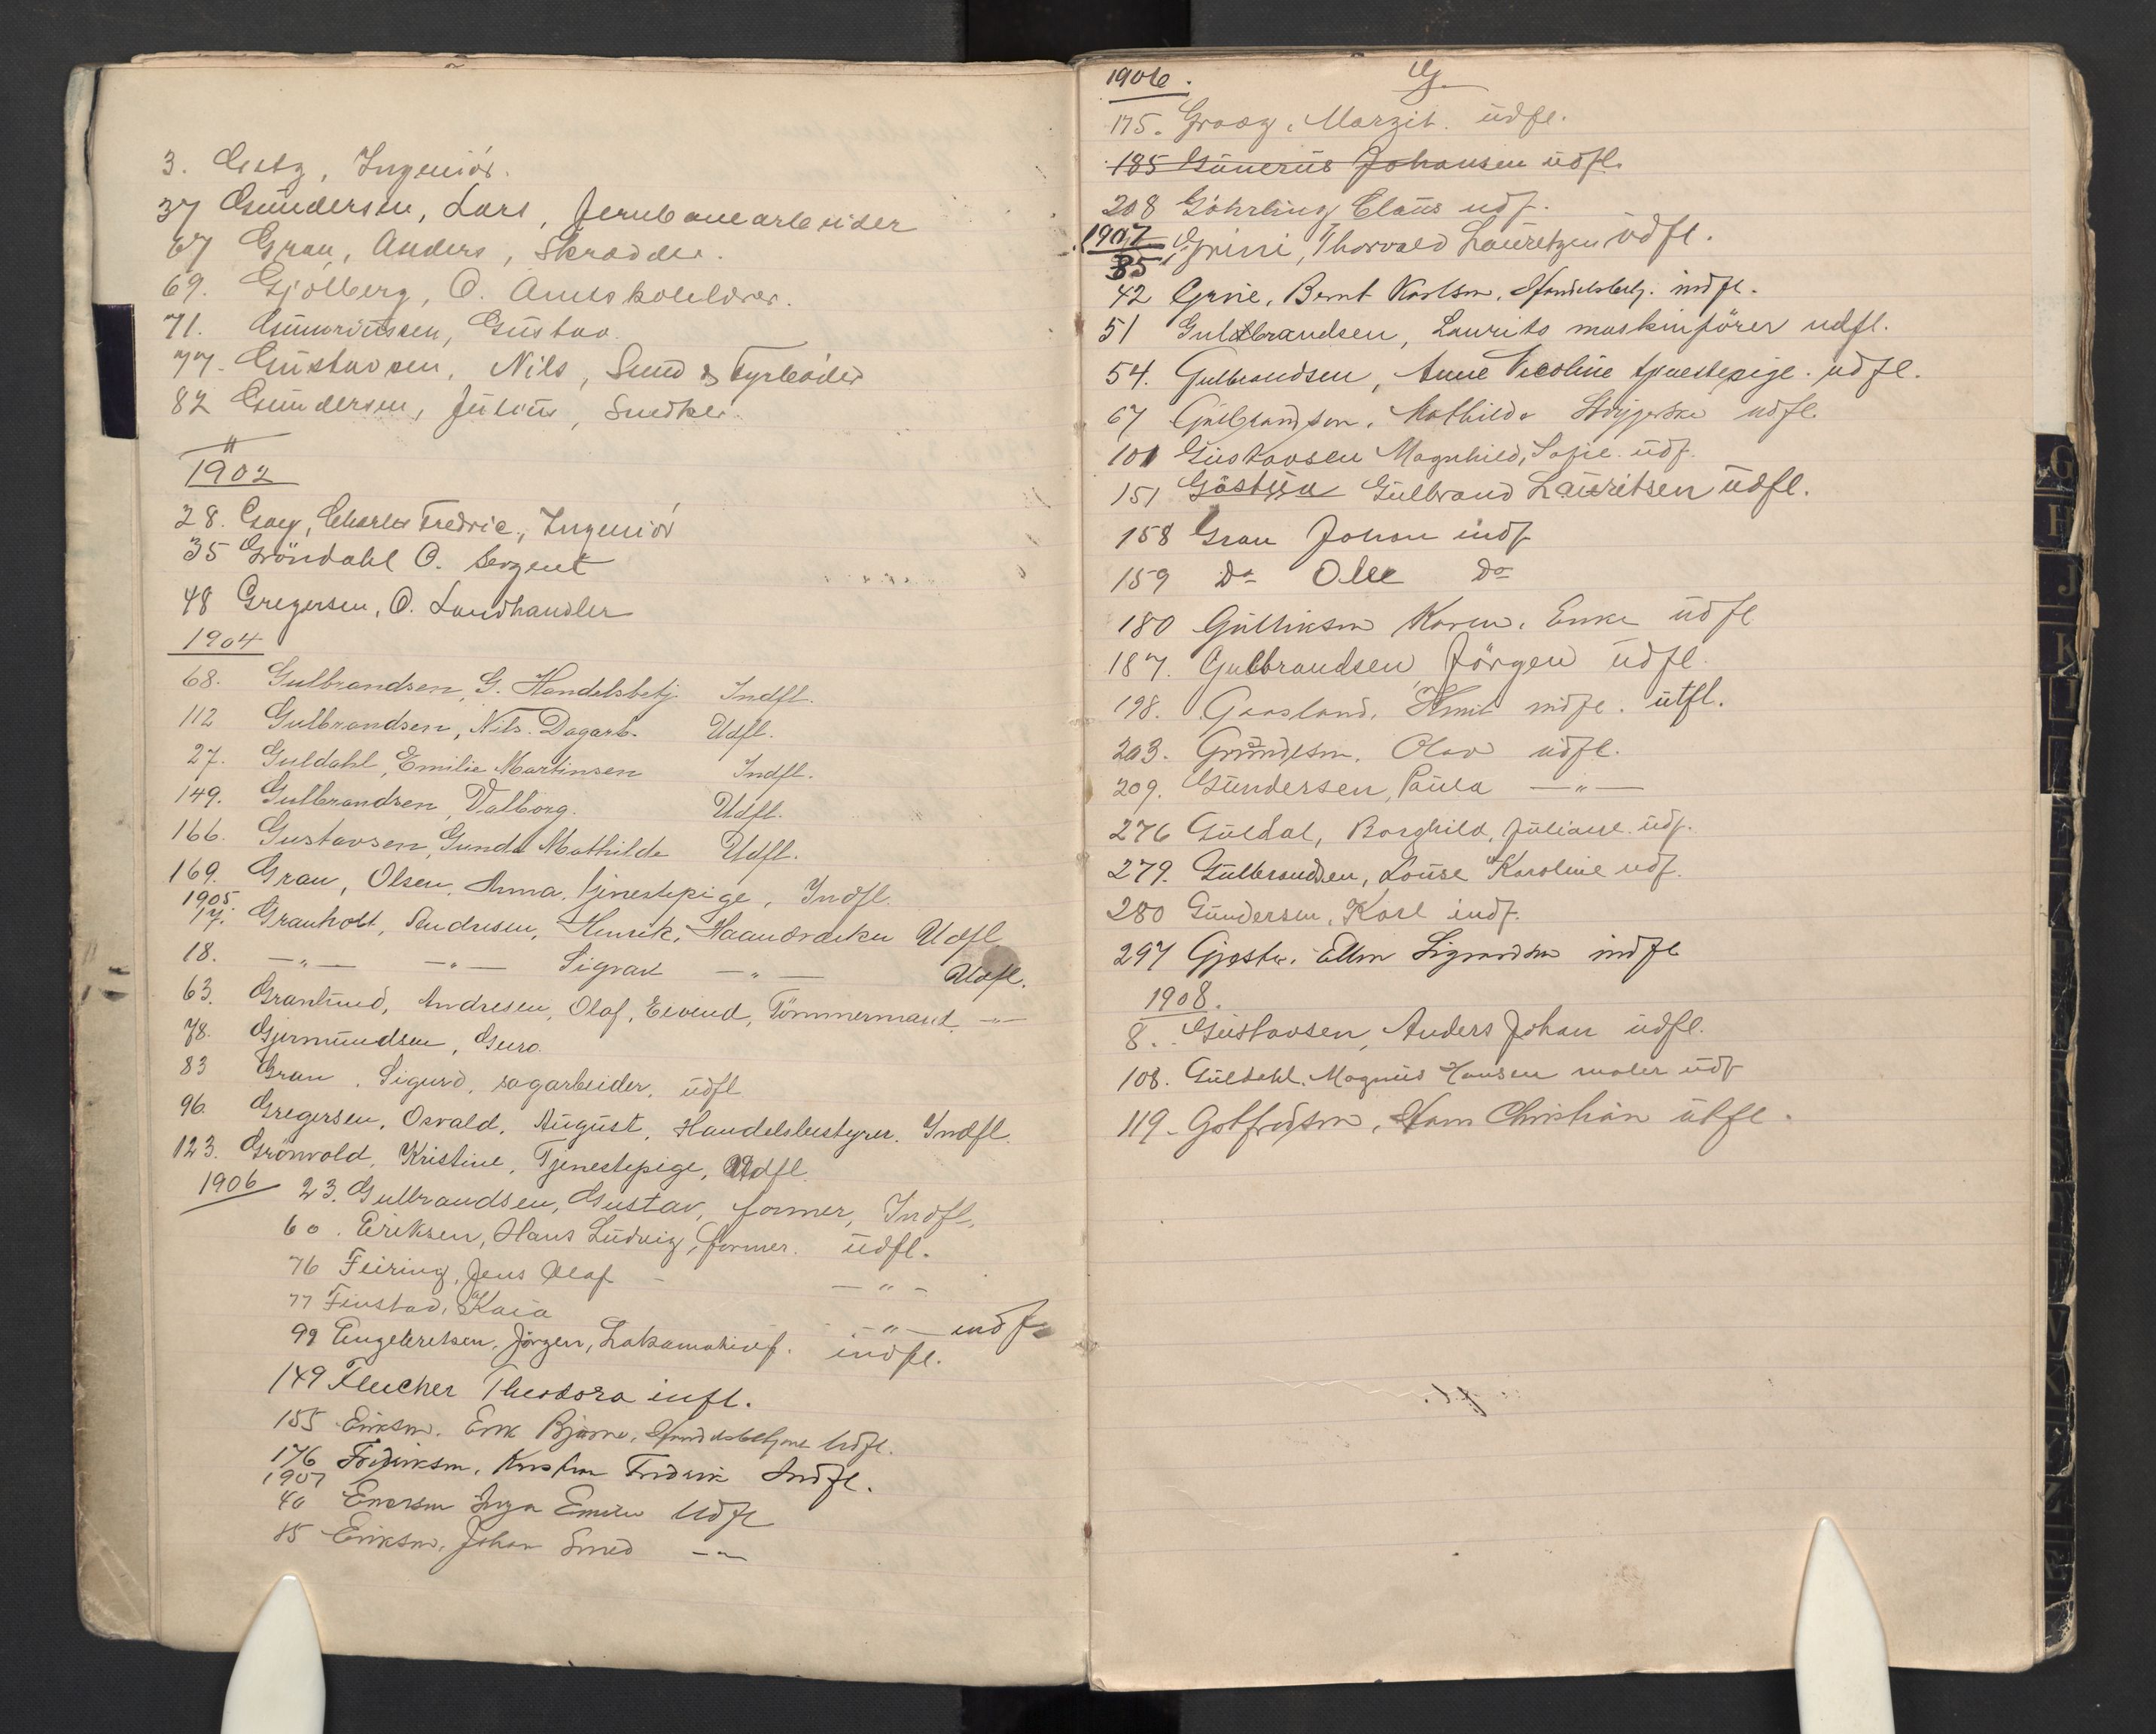 3. Gretz, Ingeniör.
37 Gundersen, Lars, Jernbanearbeider
67 Gran, Anders, Skrædder.
69. Gjölberg, O. Amtsskolelærer.
71. Guneriussen, Gustav.
77. Gustavsen, Nils, Smed & Fyrbøder
82 Gundersen, Julius, Snedker.
1902
28. Gary, Charles Fredric, Ingeniör
35 Gröndahl O. Sergent
48 Gregersen, O. Landhandler
1904
68. Gulbrandsen, G. Handelsbetj. Indfl.
112 Gulbrandsen, Nils. Dagarb. Udfl.
27. Guldahl, Emilie Martinsen Indfl.
149. Gulbrandsen, Valborg. Udfl.
166. Gustavsen, Gunda Mathilde Udfl.
169. Gran, Olsen, Anna, tjenestepige, Indfl.
1905
17. Granholt, Andresen, Henrik, Haandværker Udfl.
18. —"— —"— Sigvart —"— Udfl.
63. Granlund, Andresen, Olaf, Eivind, Tömmermand, —"—
78. Gjermundsen, Guro.
83 Gran, Sigurd, sagarbeider, udfl
96. Gregersen, Osvald, August, Handelsbestyrer. Indfl.
123. Grönvold, Kristine, Tjenestepige, Udfl.
1906 23. Gulbrandsen, Gustav, former, Indfl.
60. Eriksen, Hans Ludvig, former. udfl.
76 Feiring, Jens Olaf —"—
77 Finstad, Kaia —"— indf
99 Engebretsen, Jörgen, Lokomotivf. indfl.
149 Fleucher Theodora infl.
155 Eriksen, Erik Bjarne, Handelsbetjent Udfl.
176 Fredriksen, Kristian Fredrik Indfl.
1907
40 Enersen Inga Emilie Udfl
85 Eriksen, Johan Smed —"—
1906. G.
175. Graag, Margit. udfl.
185 Gunerius Johansen udfl.
208 Göhrling Claus udf.
1907
35 Grini, Thorvald Lauretzen udfl.
42 Grue, Bernt Karlsen, Handelsbetj. indfl.
51 Guldbrandsen, Laurits maskinförer udfl.
54. Gulbrandsen, Anne Nicoline tjenestepige. udfl.
67 Gulbrandsen, Mathilde Strygerske udfl.
101 Gustavsen Magnhild, Sofie udf.
151 Göstjua Gulbrand Lauritsen udfl.
158 Gran Johan indf
159 Do Ole Do
180 Gulliksen Karen, Enke udfl
187. Gulbrandsen, Jörgen udfl.
198. Gaasland, Knut indfl. utfl.
203. Gundersen, Olav udfl.
209. Gundersen, Paula —"—
276 Guldal, Borghild, Juliane udf.
279. Gulbrandsen, Louise Karoline udf.
280 Gundersen, Karl indf.
297 Gjeste, Ellen Sigvardsen indfl
1908.
8. Gustavsen, Anders Johan udfl.
108. Guldahl, Magnus Hansen maler udf
119. Gotfredsen, Hans Christian utfl.